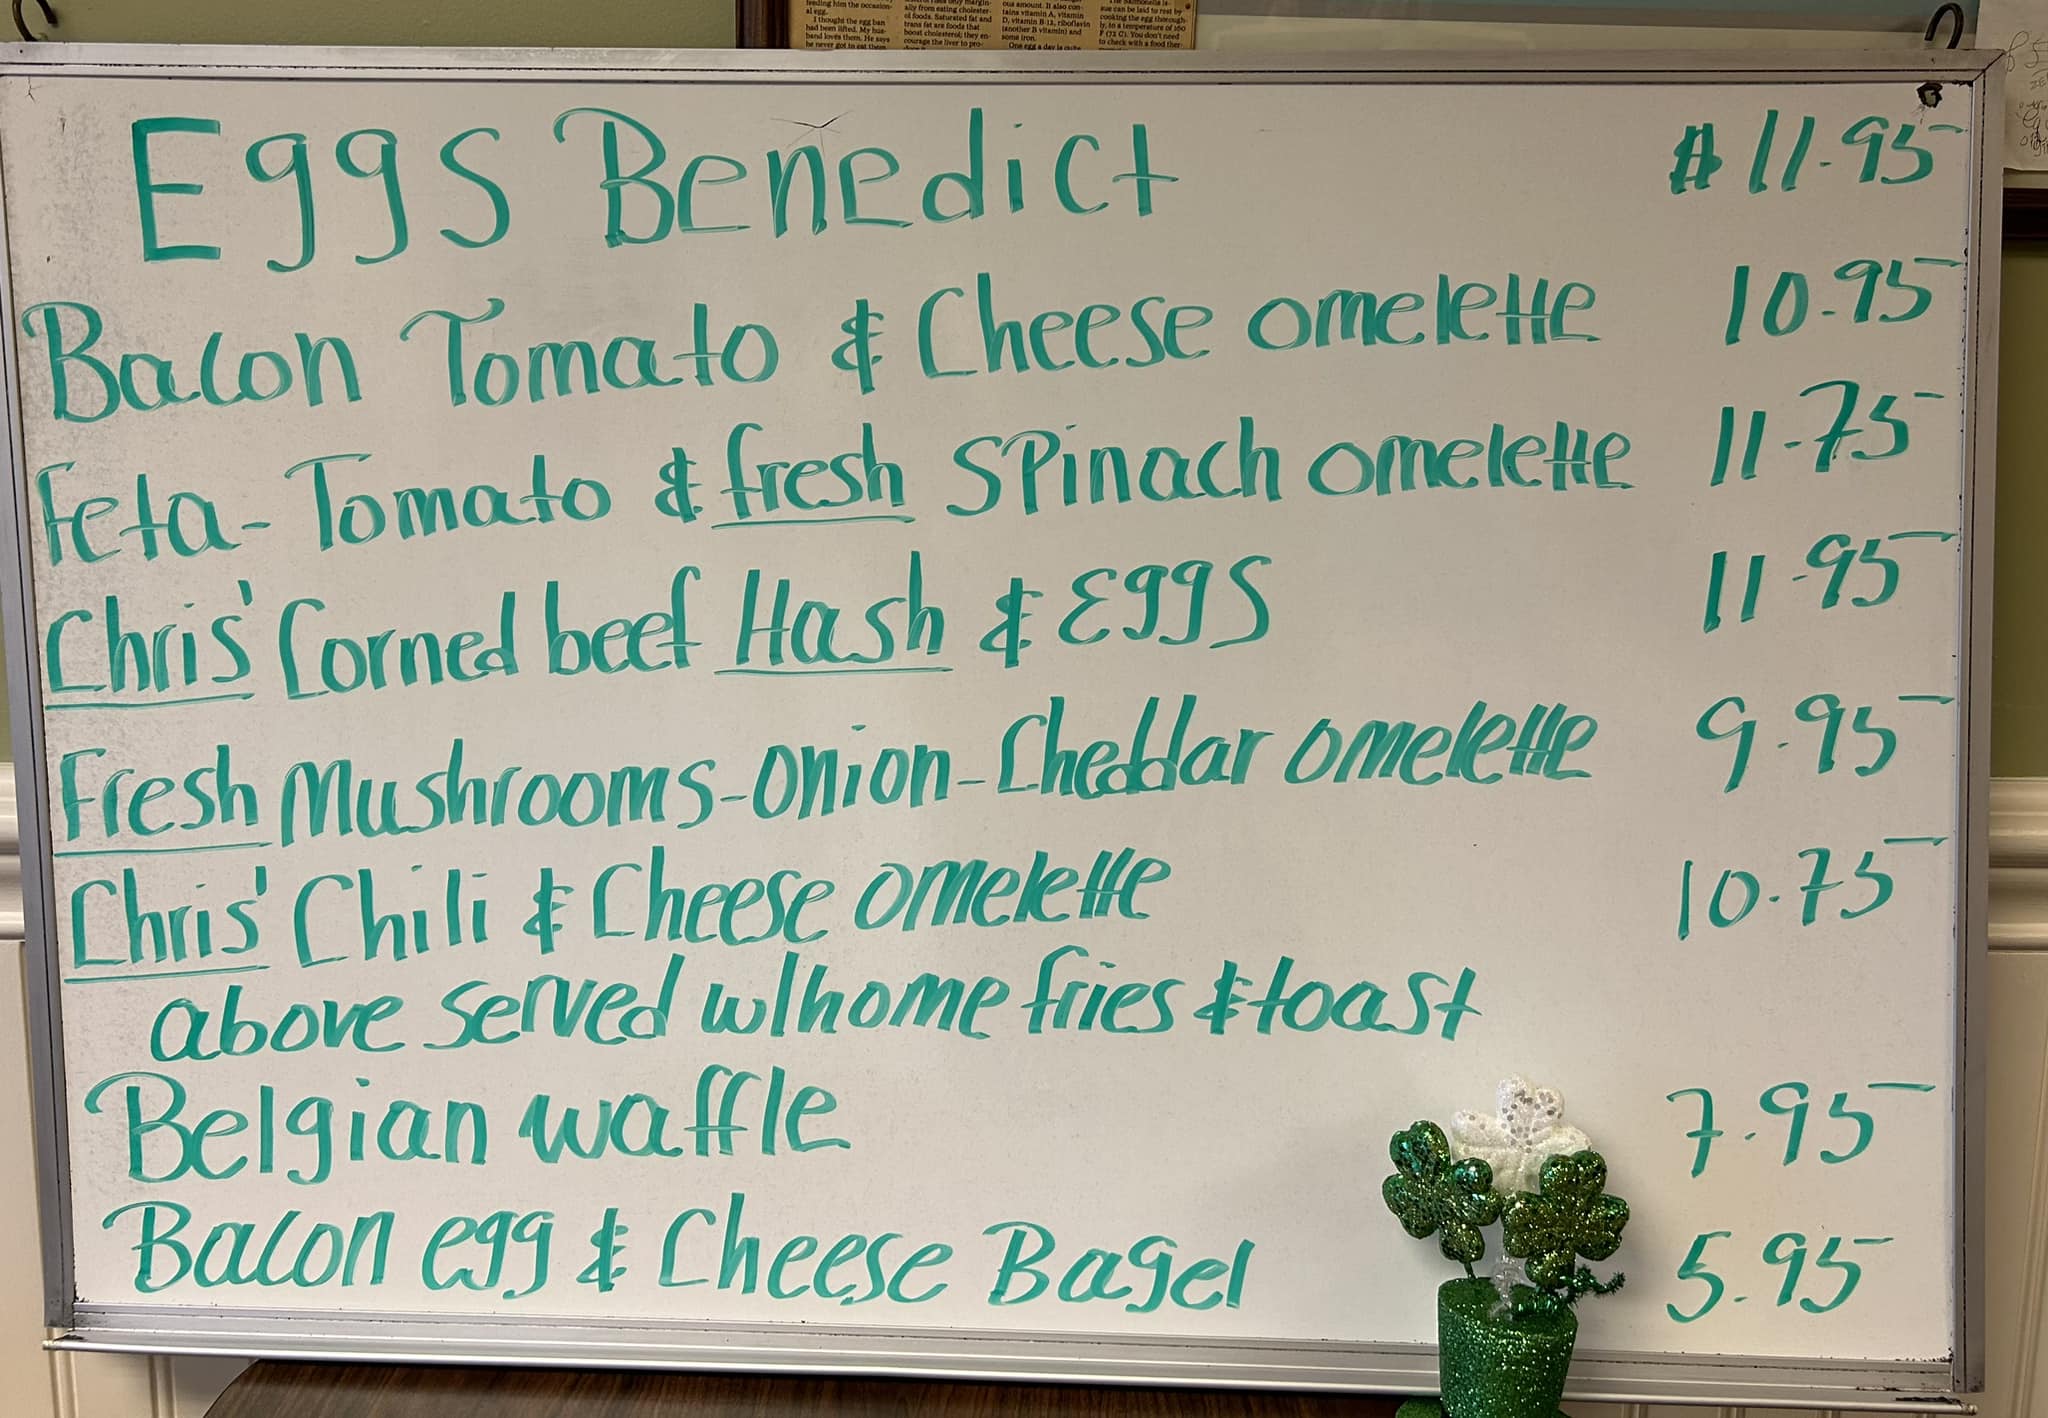 feeding him the occasion-
al egg.
I thought the egg ban
had been lifted. My hus-
band loves them. He says
he never got to eat them
ally from eating cholester-
ol foods. Saturated fat and
trans fat are foods that
boost cholesterol; they en-
courage the liver to pro-
ous amount. It also con-
tains vitamin A, vitamin
D, vitamin B-12, riboflavin
(another B vitamin) and
some iron.
One egg a day is quite
sue can be laid to rest by
cooking the egg thorough-
ly, to a temperature of 160
F (72 C). You don't need
to check with a food ther-
Eggs Benedict $11.95
Bacon Tomato & Cheese omelette 10.95
Feta-Tomato & fresh Spinach omelette 11.75
Chris' Corned beef Hash & Eggs 11.95
Fresh Mushrooms-onion-Cheddar omelette 9.95
Chris' Chili & Cheese omelette 10.75
above served w/home fries & toast
Belgian waffle 7.95
Bacon egg & Cheese Bagel 5.95